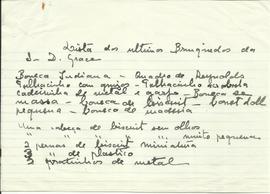 Lista dos ultimos Brinquedos da
D. Grace
Boneca Indiana - Quadro de Reynolds
Palhacinho com guizos - Palhacinho acrobata
cadeirinha de metal e - Boneca de
massa - boneca de biscuit - bonet doll
pequena - Boneca de madeira
Uma cabeça de biscuit sem olhos
" " " " muito pequena
2 pernas de biscuit miniatura
2 " de plastico
3 pratinhos de metal